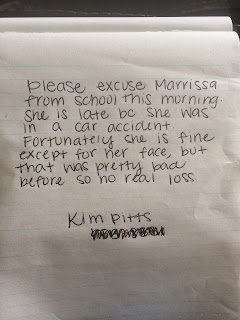 Please excuse Marrissa
from school this morning.
She is late bc she was
in a car accident.
Fortunately she is fine
except for her face, but
that was pretty bad
before so no real loss
Kim Pitts